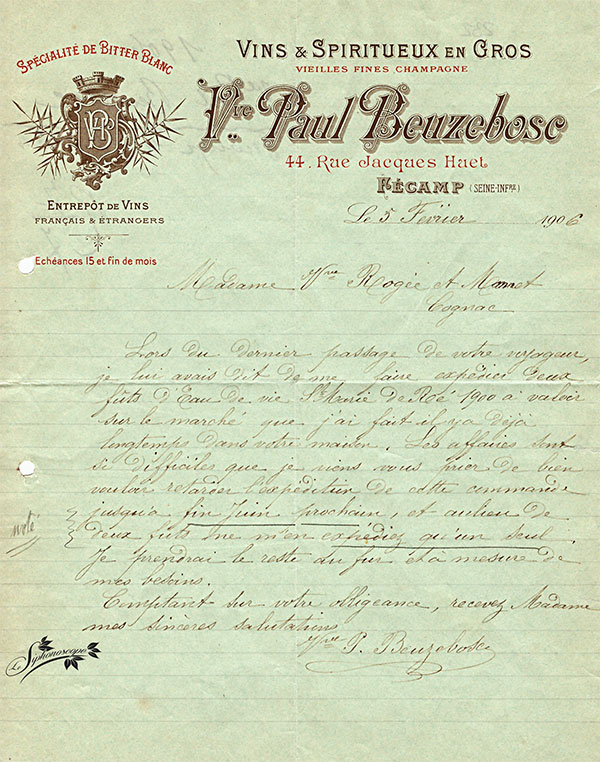 SPÉCIALITÉ DE BITTER BLANC
VB
ENTREPÔT DE VINS
FRANÇAIS & ÉTRANGERS
Echéances 15 et fin de mois
VINS & SPIRITUEUX EN GROS
VIEILLES FINES CHAMPAGNE
Vve Paul Beuzebosc
44. Rue Jacques Huet
FÉCAMP (SEINE-INFRE)
Le 5 Février 1906
Madame Vve Rogée et Monnet
Cognac
Lors du dernier passage de votre voyageur,
je lui avais dit de me faire expédier deux
fûts d'Eau de vie Ste Marie de Roé 1900 à valoir
sur le marché que j'ai fait il y a déjà
longtemps dans votre maison. Les affaires sont
si difficiles que je viens vous prier de bien
vouloir retarder l'expédition de cette commande
jusqu'à fin Juin prochain, et au lieu de
deux futs ne m'en expédiez qu'un seul.
Je prendrai le reste au fur et à mesure de
mes besoins.
Comptant sur votre obligeance, recevez Madame
mes sincères salutations
Vve P. Beuzebosc
noté
Le Siphonoscope